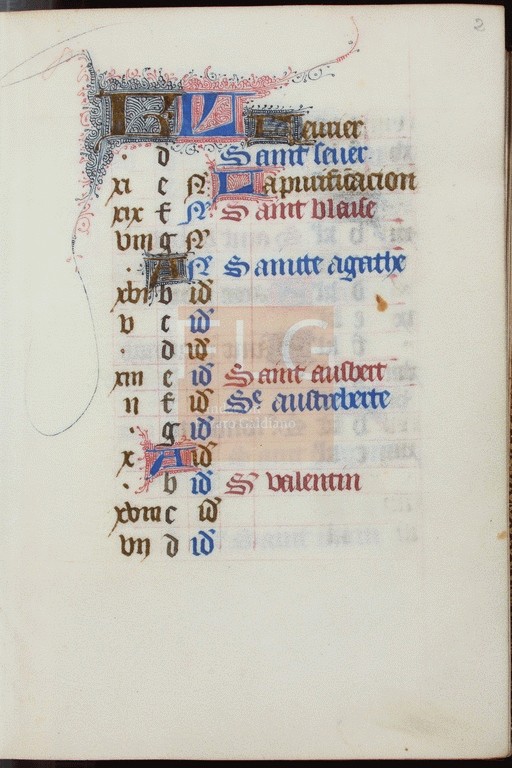 2
KL feurier
d Saint seuer
xi e N La purification
xix f N Saint blaise
viii g N
A N Saincte agathe
xvi b id
v c id
d id
xiii e id Saint ausbert
ii f id Se austreberte
g id
x A id
b id S valentin
xviii c id
vii d id
FLG